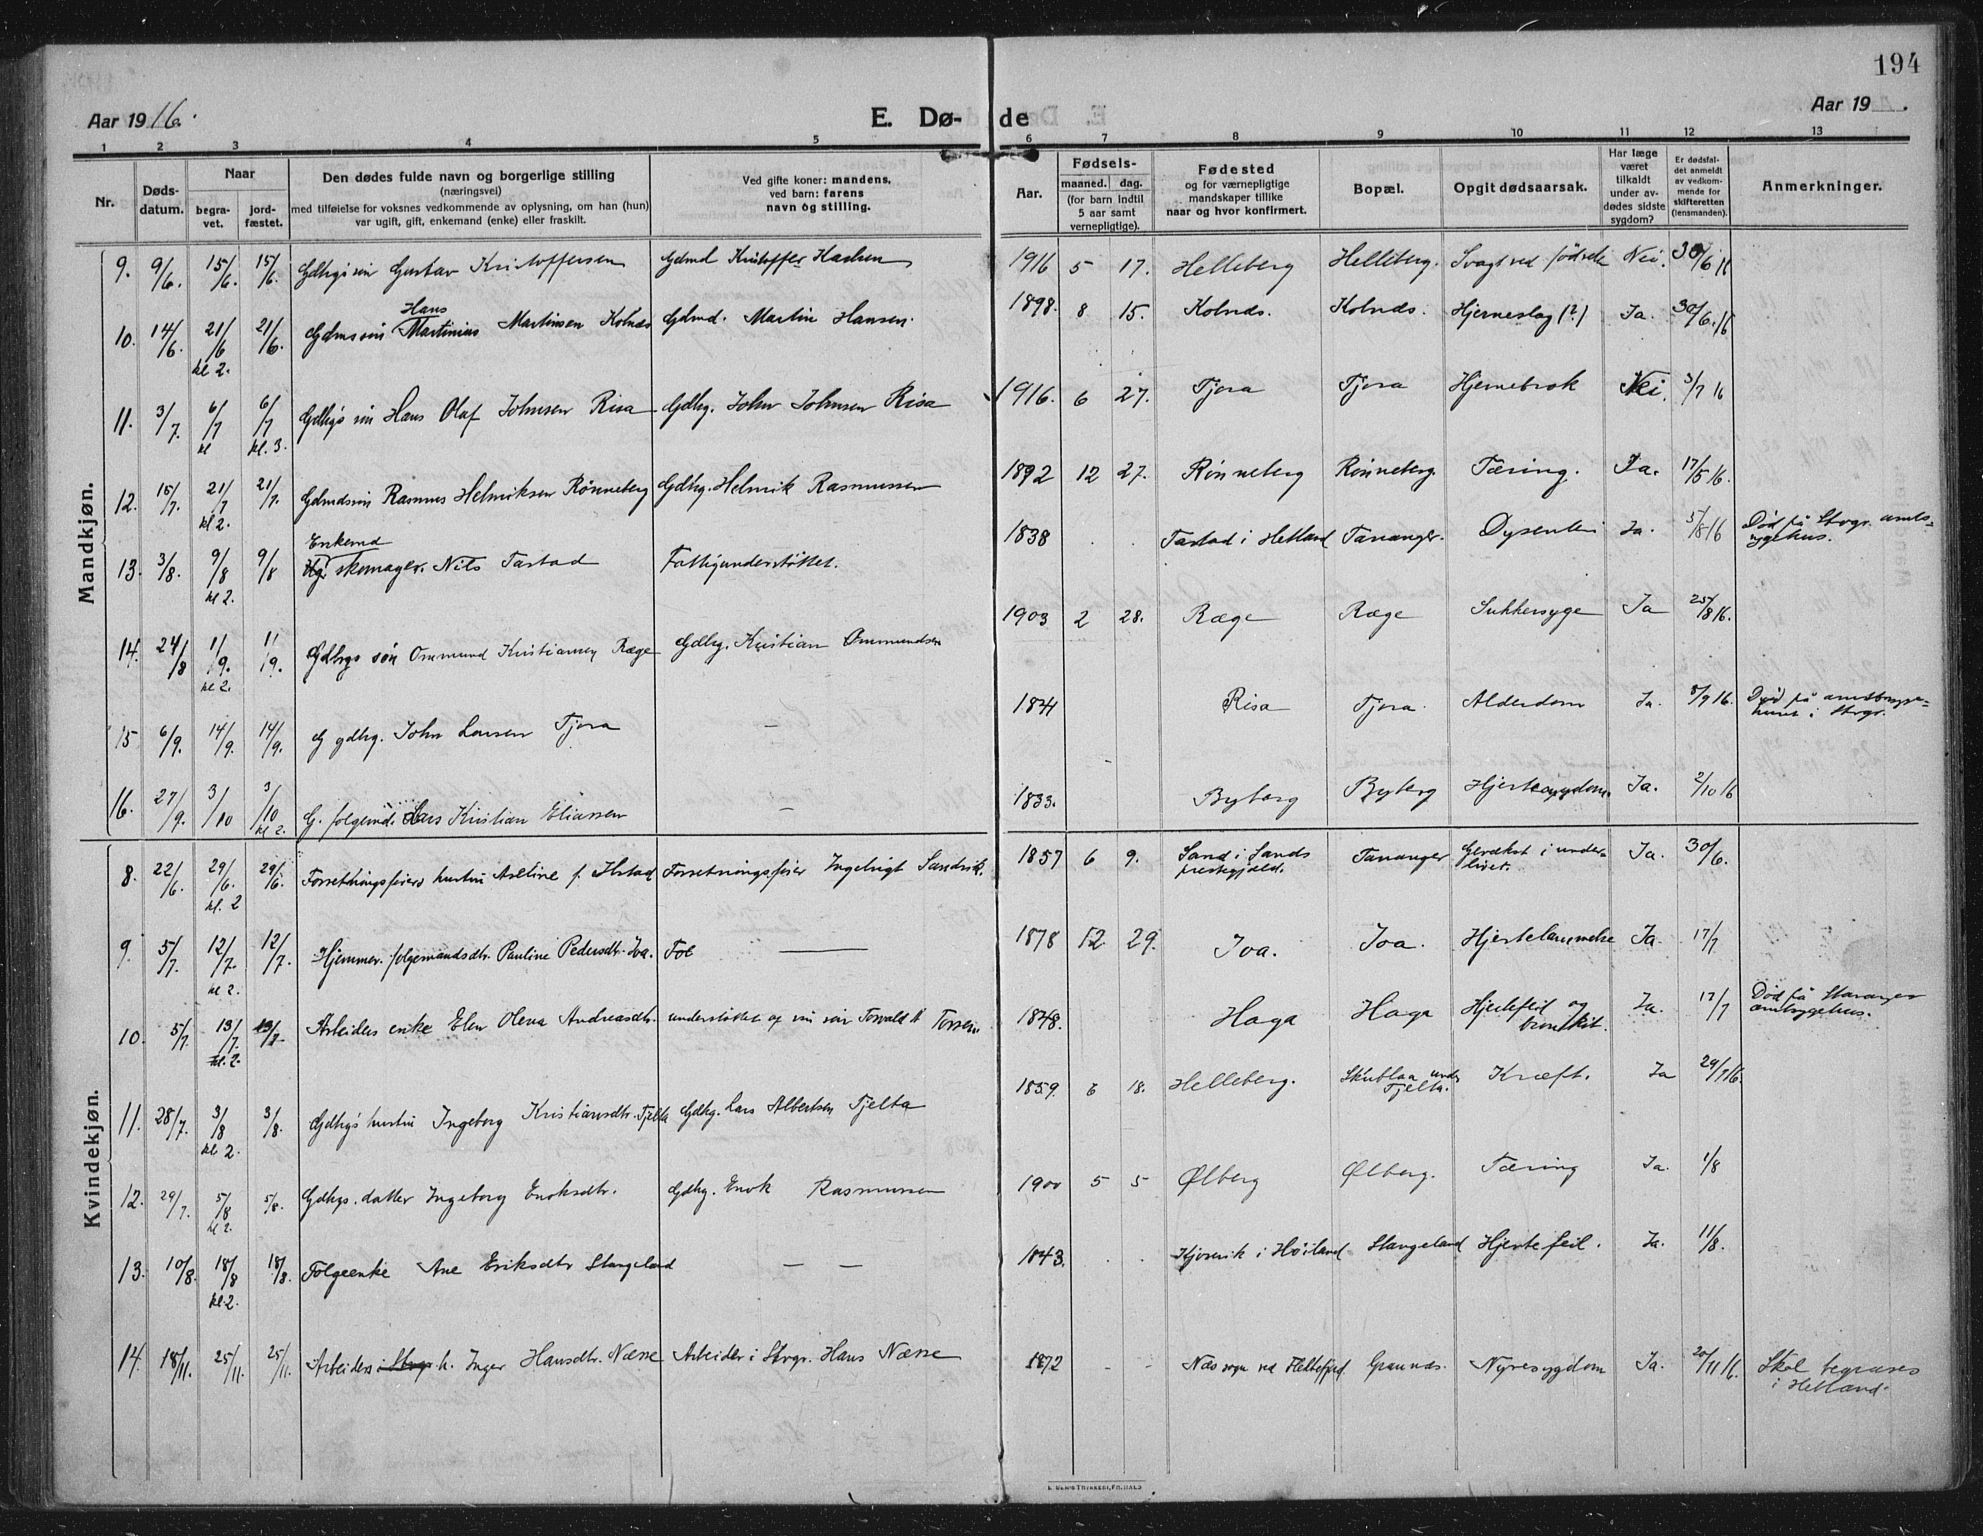 194
Aar 1916.
E. Dø- de
Aar 19 .
1 2 3 4 5 6 7 8 9 10 11 12 13
Nr.
Døds-
datum.
Naar
begra-
vet.
jord-
fæstet.
Den dødes fulde navn og borgerlige stilling
(næringsvei)
med tilføielse for voksnes vedkommende av oplysning, om han (hun)
var ugift, gift, enkemand (enke) eller fraskilt.
Ved gifte koner: mandens,
ved barn: farens
navn og stilling.
Aar.
Fødsels-
maaned. dag.
(for barn indtil
5 aar samt
vernepligtige).
Fødested
og for værnepligtige
mandskaper tillike
naar og hvor konfirmert.
Bopæl.
Opgit dødsaarsak.
Har læge
været
tilkaldt
under av-
dødes sidste
sygdom?
Er dødsfal-
det anmeldt
av vedkom-
mende for
skifteretten
(lensmanden).
Anmerkninger.
Mandkjøn.
9. 9/6. 15/6. 15/6. Gdbrgs søn Gustav Kristoffersen Gdmd Kristoffer 1916 5 17. Helleberg Helleberg. Svagt ved fødsele Nei. 30/6 16
Hans
10. 14/6. 21/6 21/6. Gdmssøn Martinius Martinsen Kolnæs Gdmd. Martin Hansen. 1898. 8 15. Kolnæs. Kolnæs. Hjerneslag (?) Ja. 30/6. 16
kl 2.
11. 3/7. 6/7 6/7 Gdbrgs søn Hans Olaf Johnsen Risa Gdbrg. John Johnsen Risa 1916. 6 27. Tjora Tjora Hjernebrok Nei. 3/7 16
kl kl. 3.
12. 15/7. 21/7 21/7. Gdmdssøn Rasmus Helmiksen Rønneberg Gdbrg. Helmik Rasmussen 1892 12 27. Rønneberg Rønneberg. Tæring. Ja. 17/5 16.
kl 2.
Enkemd
13. 3/8. 9/8 9/8 skomager. Nils Tastad Fattigunderstøttet. 1838 . . Tastad i Hetland Tananger. Dysenteri Ja. 5/8 16 Død på Stvgr. amts-
kl 2. sygehus.
14. 24/8 1/9. 1/9. Gdbrgs søn Ommund Kristiansen Ræge Gdbrg. Kristian Ommundsen 1903 2 28. Ræge Ræge Sukkersyge Ja 25/8 16.
kl 2.
15 6/9. 14/9. 14/9. G gdbrg. John Larsen Tjora — 1831 Risa Tjora. Alderdom Ja. 8/9 16. Død på amtssyge-
huset i Stvgr.
16. 27/9. 3/10 3/10 G. følgemd. Lars Kristian Eliassen — 1833. Byberg Byberg Hjertesygdom. Ja. 2/10 16
kl 2.
Kvindekjøn.
8. 22/6. 29/6. 29/6. Forretningsførers hustru Aseline f. Forretningsfører Ingebrigt Sandvik. 1857 6 9. Sand i Sands Tananger Gevækst i under- Ja. 30/6.
kl. 2 prestegjæld. livet.
9. 5/7. 12/7. 12/7. Hjemmev. følgemandsdtr. Pauline Pedersdtr. Joa. Foe — 1878 12 29. Joa. Joa. Hjertelammelse Ja. 17/7
kl 2.
10. 5/7. 13/7. 13/7 Arbeiders enke Elen Olena Andreasdtr. understøttet av sin søn Torvald 1848. Haga Haga Hjertefeil og Ja. 17/7 Død på Stavanger
kl. 2. bronkit. amtssygehus.
11. 28/7. 3/8 3/8. Gdbrgs hustru Ingeborg Kristiansdtr. Tjelta Gdbrg. Lars Albertsen Tjelta 1859. 6 18. Helleberg. Skiblaa under Kræft. Ja 29/7 16.
kl 2. Tjelta.
12. 29/7. 5/8 5/8. Gdbrgs. datter Ingeborg Enoksdtr. Gdbrg. Enok Rasmussen 1900 5 5 Ølberg Ølberg. Tæring Ja. 1/8
kl 2.
13. 10/8. 18/8 18/8. Følgeenke Ane Eriksdtr Stangeland — — 1843. . . i Høiland Stangeland Hjertefeil. Ja. 11/8.
kl 2.
14. 18/11. 25/11. 25/11. Arbeiders i Stvgr. h. Inger Hansdtr. Næsse Arbeider i Stvgr. Hans Næsse 1872 - - Næs sogn ved Grannæs. Nyresygdom Ja. 20/11 16. Skal begraves
i Hetland.